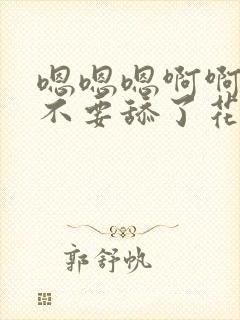 嗯嗯嗯啊啊
不要舔了花
郭舒帆